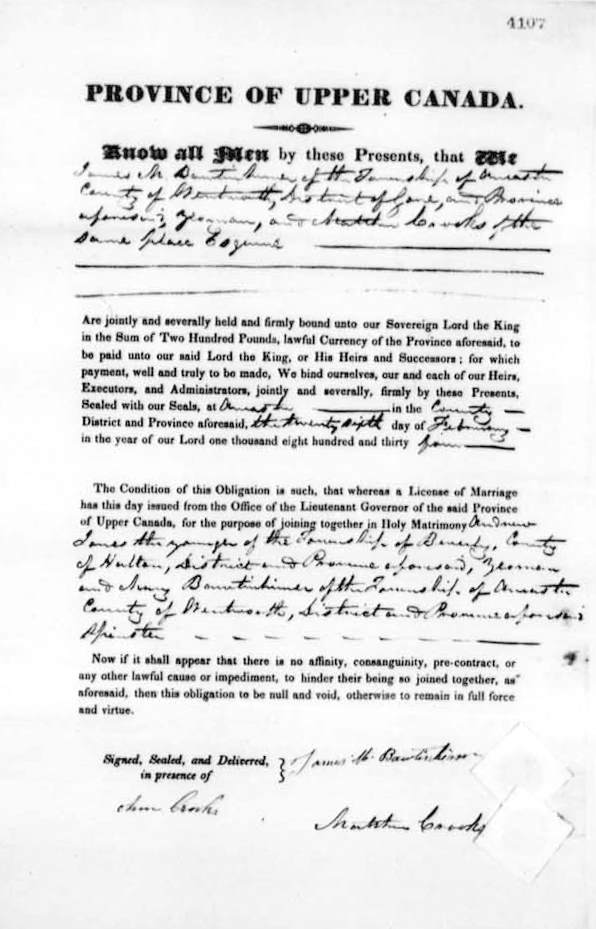 4107
PROVINCE OF UPPER CANADA.
Know all Men by these Presents, that We
James M of the Township of Ancaster
County of Wentworth, District of Gore, and Province
aforesaid, Yeoman, and Matthew Crooks of the
same place Esquire
Are jointly and severally held and firmly bound unto our Sovereign Lord the King
in the Sum of Two Hundred Pounds, lawful Currency of the Province aforesaid, to
be paid unto our said Lord the King, or His Heirs and Successors; for which
payment, well and truly to be made, We bind ourselves, our and each of our Heirs,
Executors, and Administrators, jointly and severally, firmly by these Presents,
Sealed with our Seals, at Ancaster in the County
District and Province aforesaid, the twenty sixth day of February
in the year of our Lord one thousand eight hundred and thirty four
The Condition of this Obligation is such, that whereas a License of Marriage
has this day issued from the Office of the Lieutenant Governor of the said Province
of Upper Canada, for the purpose of joining together in Holy Matrimony Andrew
Jones the younger of the Township of Beverly, County
of Halton, District and Province aforesaid, Yeoman
and Bawtinhimer of the Township of Ancaster
County of Wentworth, District and Province aforesaid
Spinster
Now if it shall appear that there is no affinity, consanguinity, pre-contract, or
any other lawful cause or impediment, to hinder their being so joined together, as
aforesaid, then this obligation to be null and void, otherwise to remain in full force
and virtue.
Signed, Sealed, and Delivered, James M. Bawtinhimer
in presence of
Crooks
Matthew Crooks